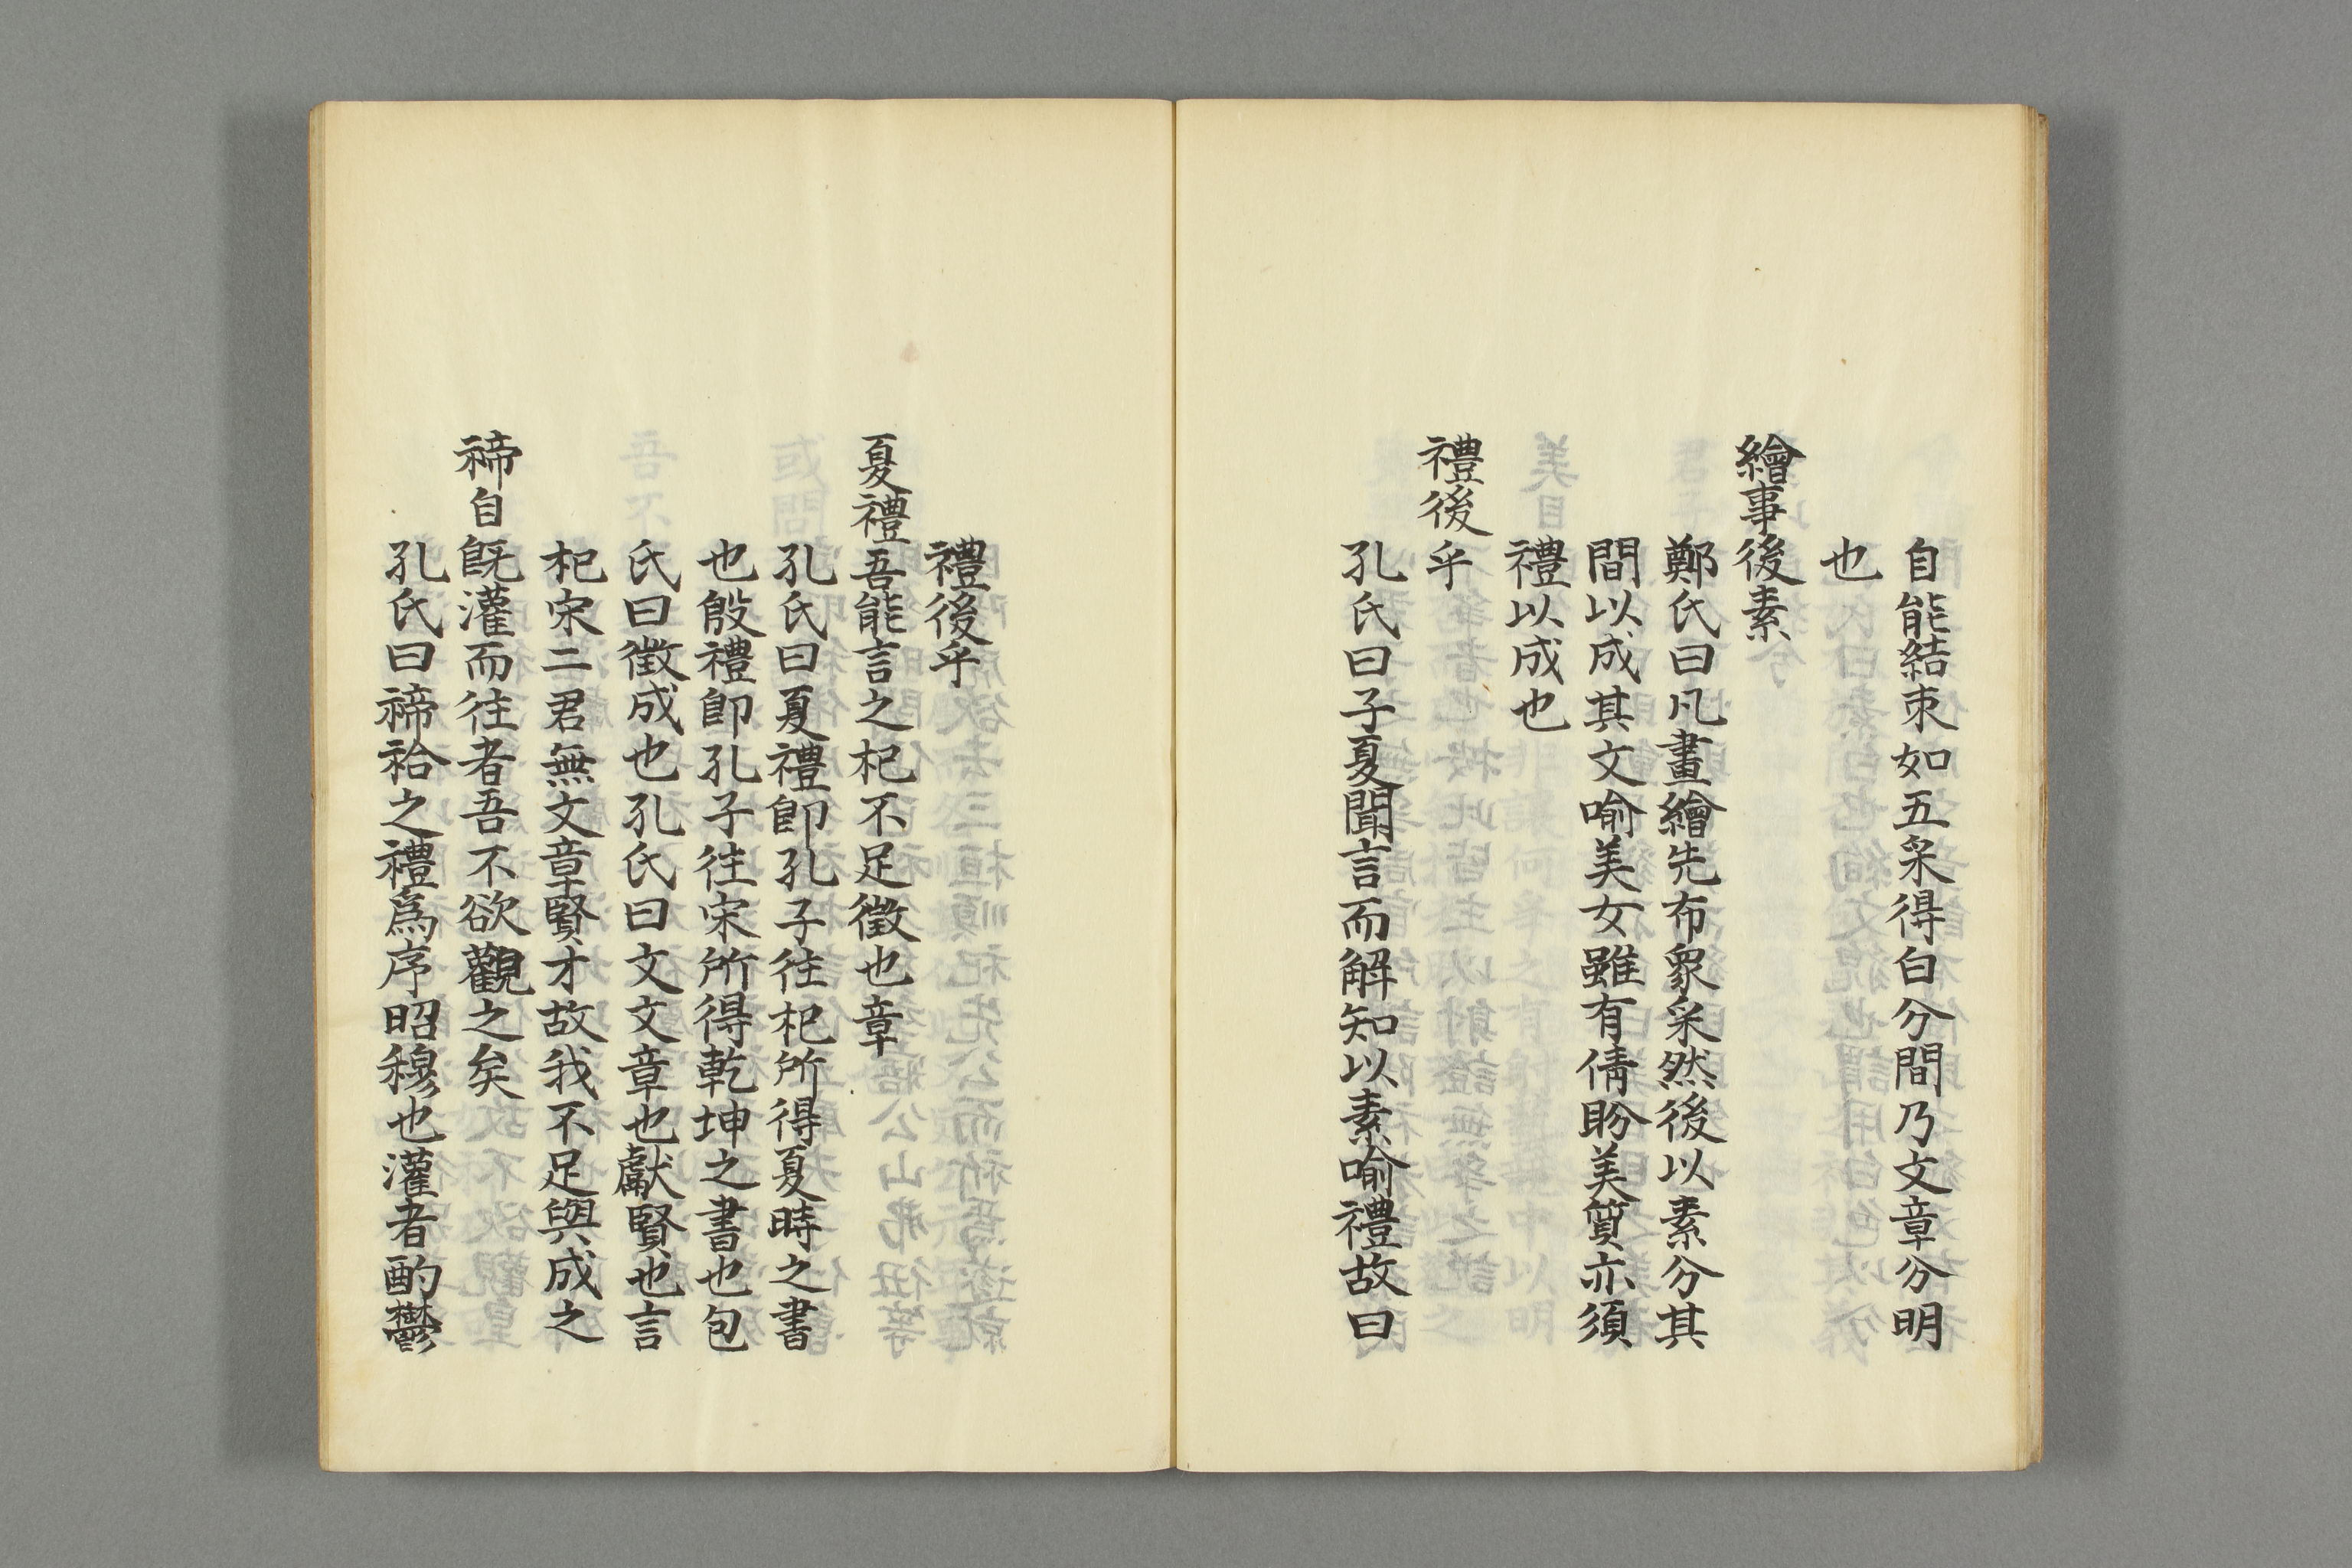 自能結束如五采得白分間乃文章分明
也
繪事後素
鄭氏曰凡畫繪先布衆采然後以素分其
間以成其文喻美女雖有倩盼美質亦須
禮以成也
禮後乎
孔氏曰子夏聞言而解知以素喻禮故曰
禮後乎
夏禮吾能言之杞不足徵也章
孔氏曰夏禮卽孔子往杞所得夏時之書
也殷禮卽孔子往宋所得乾坤之書也包
氏曰徵成也孔氏曰文文章也獻賢也言
杞宋二君無文章賢才故我不足與成之
禘自既灌而往者吾不欲觀之矣
孔氏曰禘祫之禮爲序昭穆也灌者酌鬱